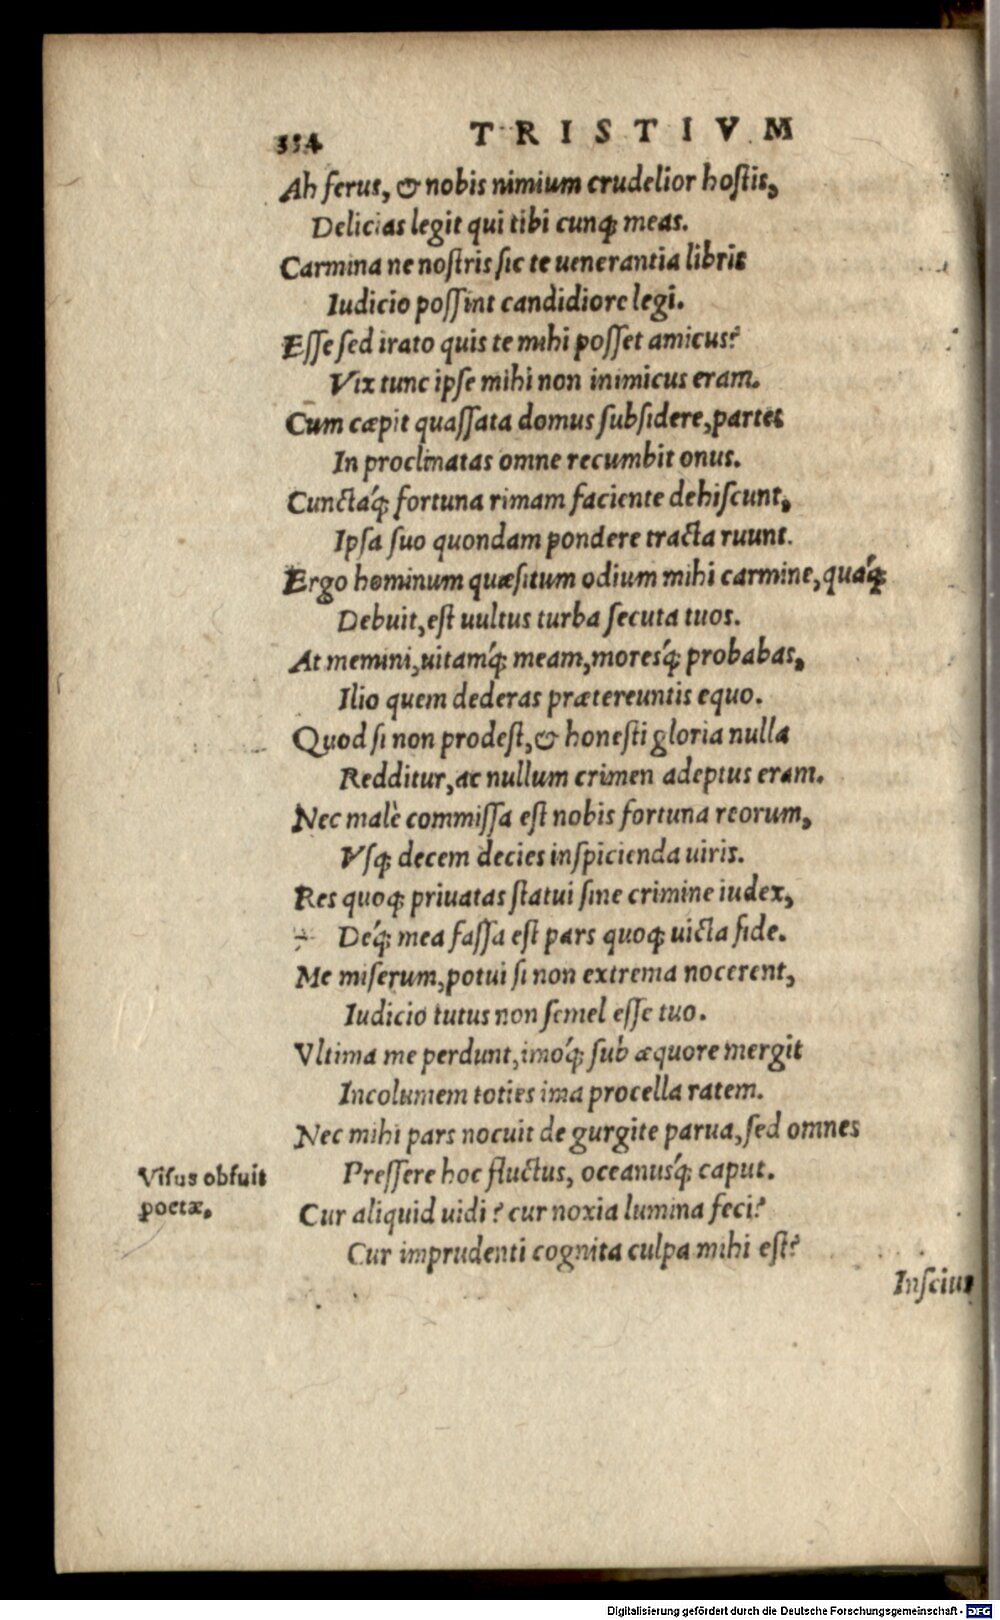 334 TRISTIVM
Ah ferus, & nobis nimium crudelior hoſtis,
Delicias legit qui tibi cunq; meas.
Carmina ne noſtris ſic te uenerantia libris
Iudicio poſſint candidiore legi.
Eſſe ſed irato quis te mihi poſſet amicus?
Vix tunc ipſe mihi non inimicus eram.
Cum cæpit quaſſata domus ſubſidere, partes
In proclinatas omne recumbit onus.
Cunctáq; fortuna rimam faciente dehiſcunt,
Ipſa ſuo quondam pondere tracta ruunt.
Ergo hominum quæſitum odium mihi carmine, quáq;
Debuit, eſt uultus turba ſecuta tuos.
At memini, uitamq́; meam, moresq́; probabas,
Ilio quem dederas prætereuntis equo.
Quod ſi non prodeſt, & honeſti gloria nulla
Redditur, at nullum crimen adeptus eram.
Nec malè commiſſa eſt nobis fortuna reorum,
Vſq; decem decies inſpicienda uiris.
Res quoq; priuatas ſtatui ſine crimine iudex,
Déq; mea faſſa eſt pars quoq; uicta fide.
Me miſerum, potui ſi non extrema nocerent,
Iudicio tutus non ſemel eſſe tuo.
Vltima me perdunt, imoq́; ſub æquore mergit
Incolumem toties ima procella ratem.
Nec mihi pars nocuit de gurgite parua, ſed omnes
Preſſere hoc fluctus, oceanusq́; caput.
Viſus obfuit
poetæ,
Cur aliquid uidi? cur noxia lumina feci?
Cur imprudenti cognita culpa mihi eſt?
Inſcius
Digitalisierung gefördert durch die Deutsche Forschungsgemeinschaft - DFG